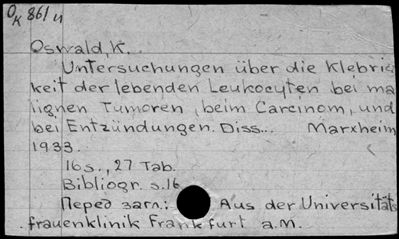 Oк 861и
Oswald, K.
Untersuchungen über die Klebrig
keit der lebenden Leukocyten bei ma
lignen Tumoren, beim Carcinom, und
bei Entzündungen. Diss... Marxheim
1933.
16 s., 27 Tab.
Bibliogr. s. 16
Перед загл.: Aus der Universitäts
frauenklinik Frankfurt a. M.